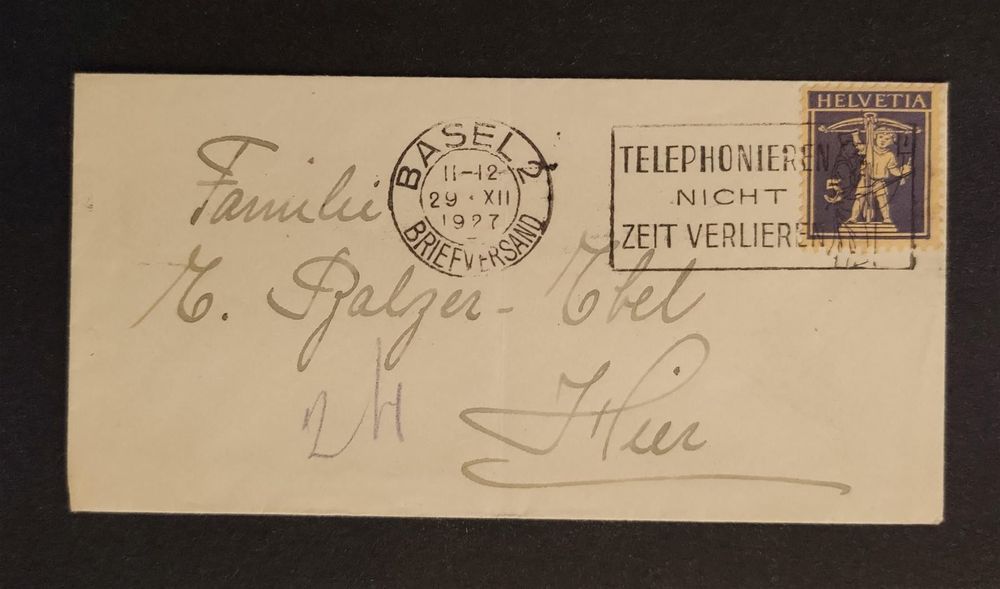 HELVETIA
5
BASEL 2
11-12
29 · XII
1927
BRIEFVERSAND
TELEPHONIEREN
NICHT
ZEIT VERLIEREN
Familie
E. Pfalzer-Ebel
Hier